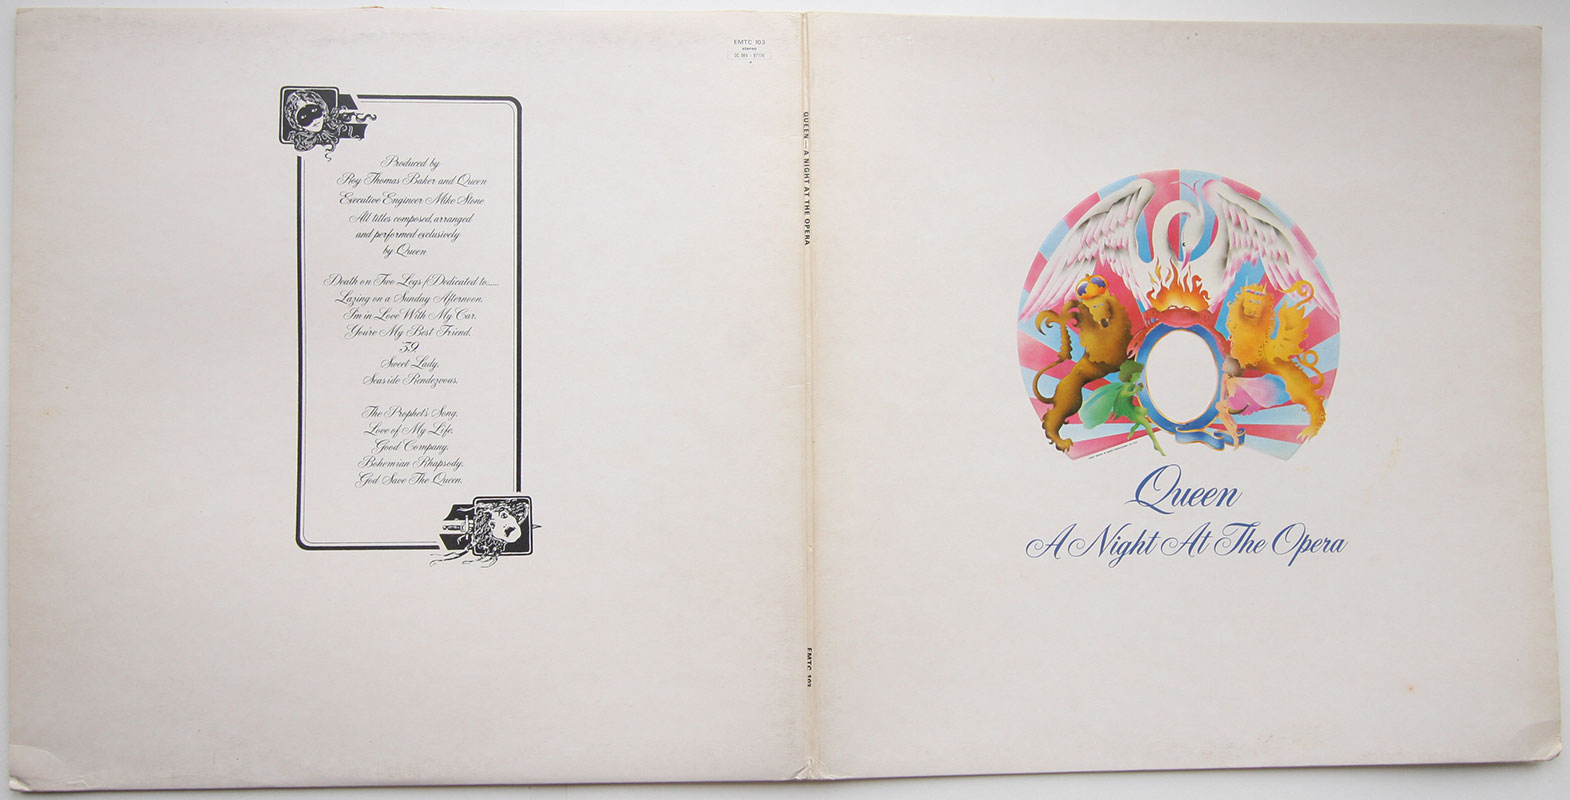 EMTC 103
stereo
Produced by
Roy Thomas Baker and Queen
Executive Engineer Mike Stone
All titles composed, arranged
and performed exclusively
by Queen
Death on Two Legs (Dedicated to......
Lazing on a Sunday Afternoon.
I'm in Love With My Car.
You're My Best Friend.
'39.
Sweet Lady.
Seaside Rendezvous.
The Prophet's Song.
Love of My Life.
Good Company.
Bohemian Rhapsody.
God Save The Queen.
QUEEN — A NIGHT AT THE OPERA
EMTC 103
Queen
A Night At The Opera